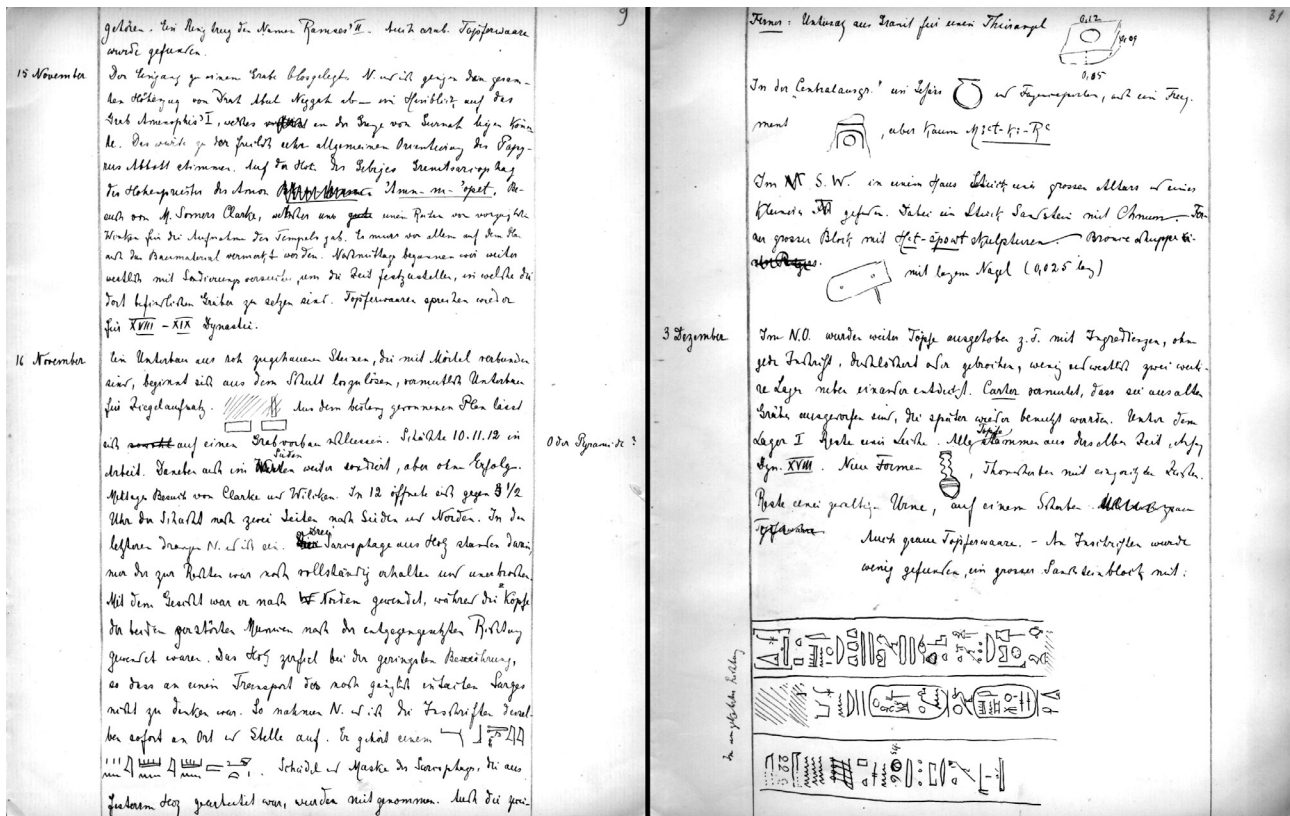 9
gehören. Ein Ring trug den Namen Ramses' II. Auch arab. Töpferwaare
wurde gefunden.
15 November
Den Eingang zu einem Grabe blosgelegt. N. und ich gingen den gesam-
ten Höhenzug von Drah Abul Neggah ab – im Hinblick auf das
Grab Amenophis' I, welches an der Grenze von Gurnah liegen könn-
te. Das würde zu der freilich sehr allgemeinen Orientierung des Papy-
rus Abbott stimmen. Auf der Höhe des Gebirges Granitsarcophag
des Hohenpriesters des Amon 'Imn-m-'opet. Be-
such von M. Somers Clarke, welcher uns einen Reihen von vorzüglichen
Winken für die Aufnahme des Tempels gab. Es muss vor allem auf dem Plan
auch das Baumaterial vermerkt werden. Nachmittag begannen wir weiter
westlich mit Sondierungsversuchen, um die Zeit festzustellen, in welche die
dort befindlichen Gräber zu setzen sind. Töpferwaaren sprechen wieder
für XVIII – XIX Dynastie.
16 November
Ein Unterbau aus roh zugehauenen Steinen, die mit Mörtel verbunden
sind, beginnt sich aus dem Schutt loszulösen, vermutlich Unterbau
für Ziegelaufsatz. Aus dem bislang gewonnenen Plan lässt
sich auf einen Grabvorbau schliessen. Schächte 10. 11. 12 in
Oder Pyramide?
Arbeit. Daneben auch im Süden weiter sondiert, aber ohne Erfolg.
Mittags Besuch von Clarke und Wilcken. In 12 öffnete sich gegen 3 1/2
Uhr der Schacht nach zwei Seiten nach Süden und Norden. In den
letzteren drangen N. und ich ein. Drei Sarcophage aus Holz standen darin,
nur der zur Rechten war noch vollständig erhalten und unerbrochen.
Mit dem Gesicht war er nach Norden gewendet, während die Köpfe
der beiden zerstörten Mumien nach der entgegengesetzten Richtung
gewendet waren. Das Holz zerfiel bei der geringsten Berührung,
so dass an einen Transport des noch gänzlich intakten Sarges
nicht zu denken war. So nahmen N. und ich die Inschriften dessel-
ben sofort an Ort und Stelle auf. Er gehört einem
Schädel und Maske des Sarcophags, die aus
festerem Holz gearbeitet war, wurden mitgenommen. Auch die zwei-
31
Ferner: Untersatz aus Granit für einen Thürangel
0,12
0,09
0,05
In der "Centralausgr." ein Uschebti und Fayenceperlen, auch ein Frag-
ment, aber kaum M;ct-k;-Rc
Im S.W. in einem Haus Stück eines grossen Altars und eines
kleineren gefunden. Dabei ein Stück Sandstein mit Chnum. Fer-
ner grosser Block mit Ḥ;t-špowt Skulpturen.
mit langem Nagel (0,025 lang)
3 Dezember
Im N.O. wurden weiter Töpfe ausgehoben z. T. mit Ingredienzen, ohne
jede Inschrift, durchlöchert oder gebrochen, wenig nordwestlich zwei weite-
re Lager neben einander entdeckt. Carter vermutet, dass sie aus alten
Gräbern ausgeworfen sind, die später wieder benutzt wurden. Unter dem
Lager I Reste einer Leiche. Alle Töpfe stammen aus derselben Zeit, Anfang
Dyn. XVIII. Neue Formen, Thonscherben mit eingeritzten Leisten.
Reste einer gewaltigen Urne, auf einem Scherben
Auch graue Töpferwaare. – An Inschriften wurde
wenig gefunden, ein grosser Sandsteinblock mit:
In umgekehrter Richtung